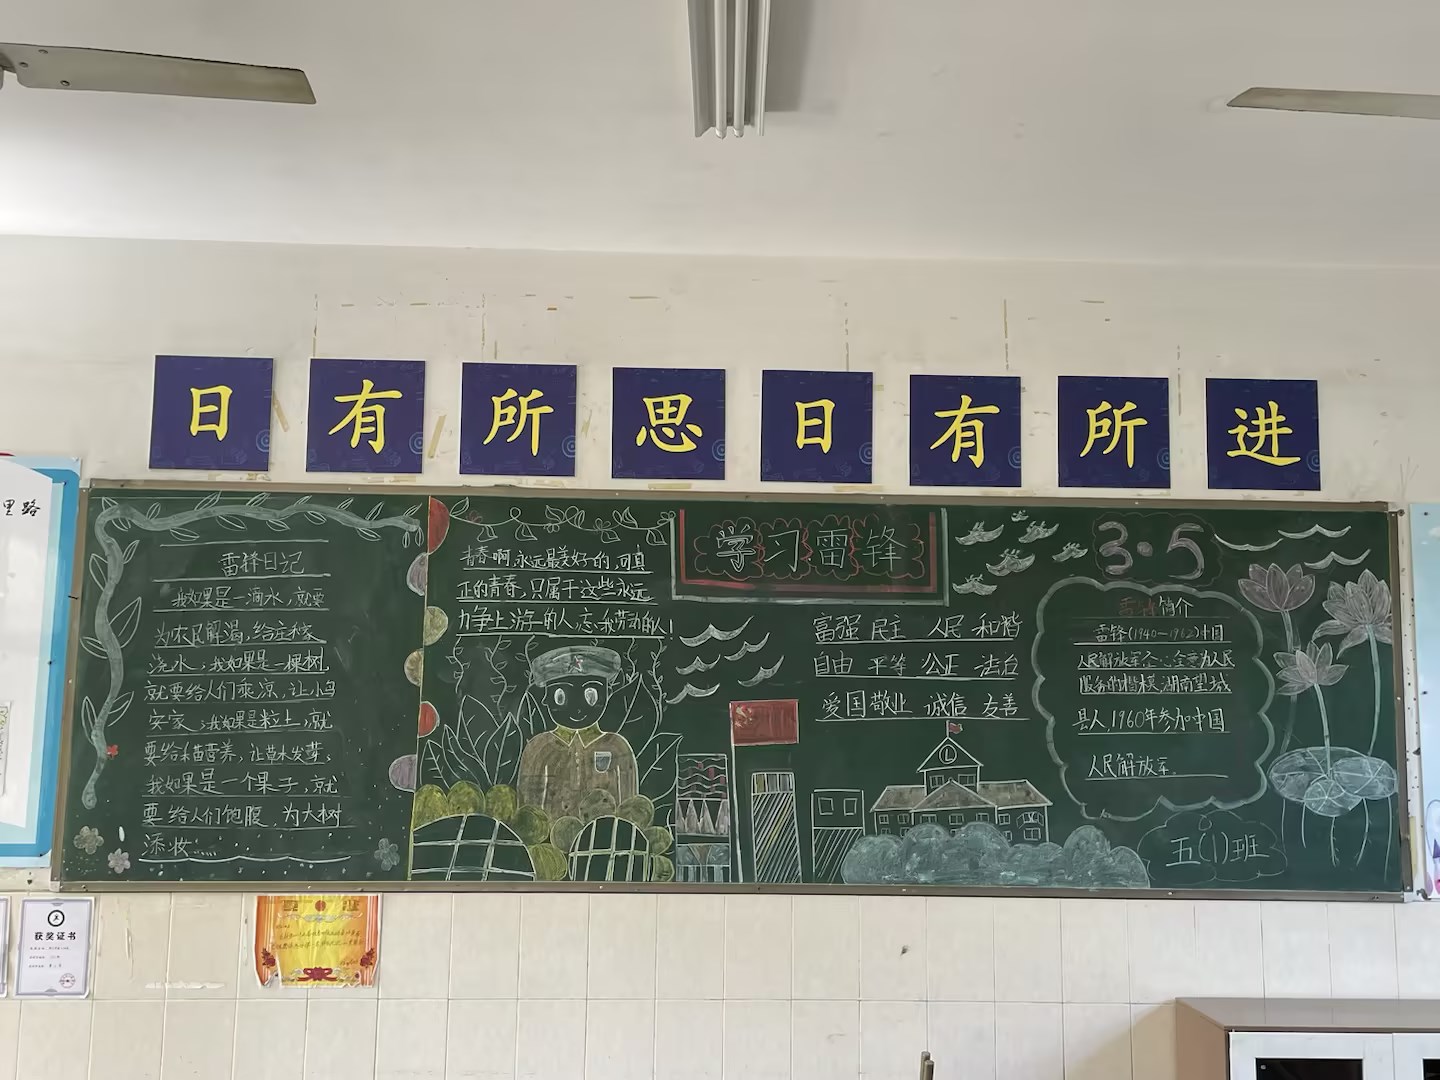 日有所思日有所进
里路
雷锋日记
我如果是一滴水，就要
为农民解渴，给庄稼
浇水；我如果是一棵树，
就要给人们乘凉，让小鸟
安家；我如果是粒土，就
要给禾苗营养，让草木发芽；
我如果是一个果子，就
要给人们饱腹，为大树
添妆……
青春啊，永远是美好的，可真
正的青春，只属于这些永远
力争上游的人，忘我劳动的人！
学习雷锋
富强 民主 人民 和谐
自由 平等 公正 法治
爱国 敬业 诚信 友善
3·5
雷锋简介
雷锋(1940—1962)中国
人民解放军全心全意为人民
服务的楷模,湖南望城
县人,1960年参加中国
人民解放军.
五(1)班
获奖证书